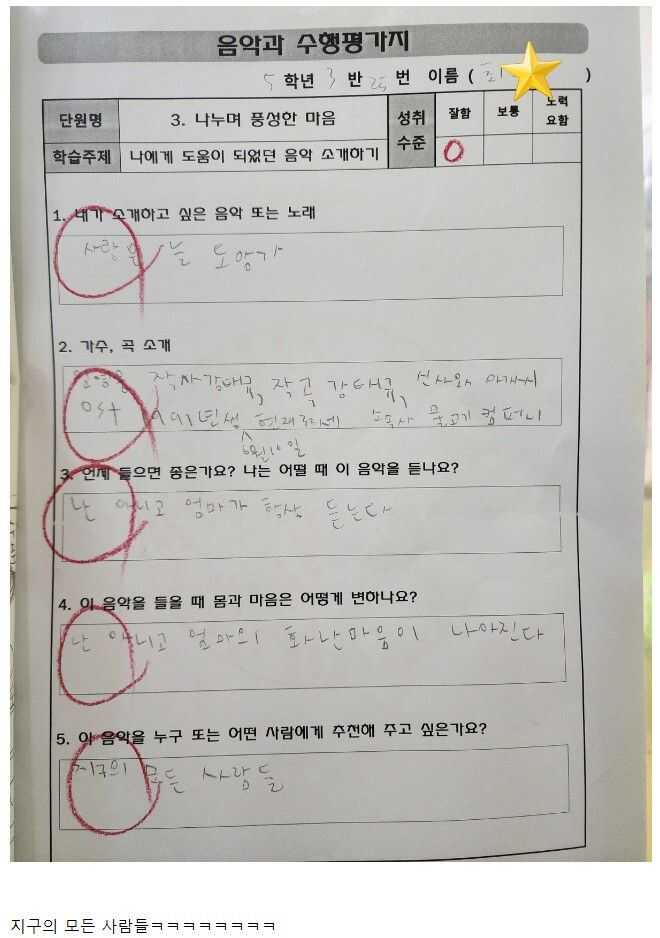 음악과 수행평가지
5 학년 3 반 25 번 이름 ( )
단원명 3. 나누며 풍성한 마음 성취수준 잘함 보통 노력요함
학습주제 나에게 도움이 되었던 음악 소개하기 O
1. 내가 소개하고 싶은 음악 또는 노래
사랑은 늘 도망가
2. 가수, 곡 소개
임영웅 작사 강태규, 작곡 강태규, 신사와 아가씨
OST 1991년생 현재 소속사 물고기 컴퍼니
6월 16일
3. 언제 들으면 좋은가요? 나는 어떨 때 이 음악을 듣나요?
난 아니고 엄마가 항상 듣는다
4. 이 음악을 들을 때 몸과 마음은 어떻게 변하나요?
난 아니고 엄마의 화난마음이 나아진다
5. 이 음악을 누구 또는 어떤 사람에게 추천해 주고 싶은가요?
지구의 모든 사람들
지구의 모든 사람들ㅋㅋㅋㅋㅋㅋㅋㅋ